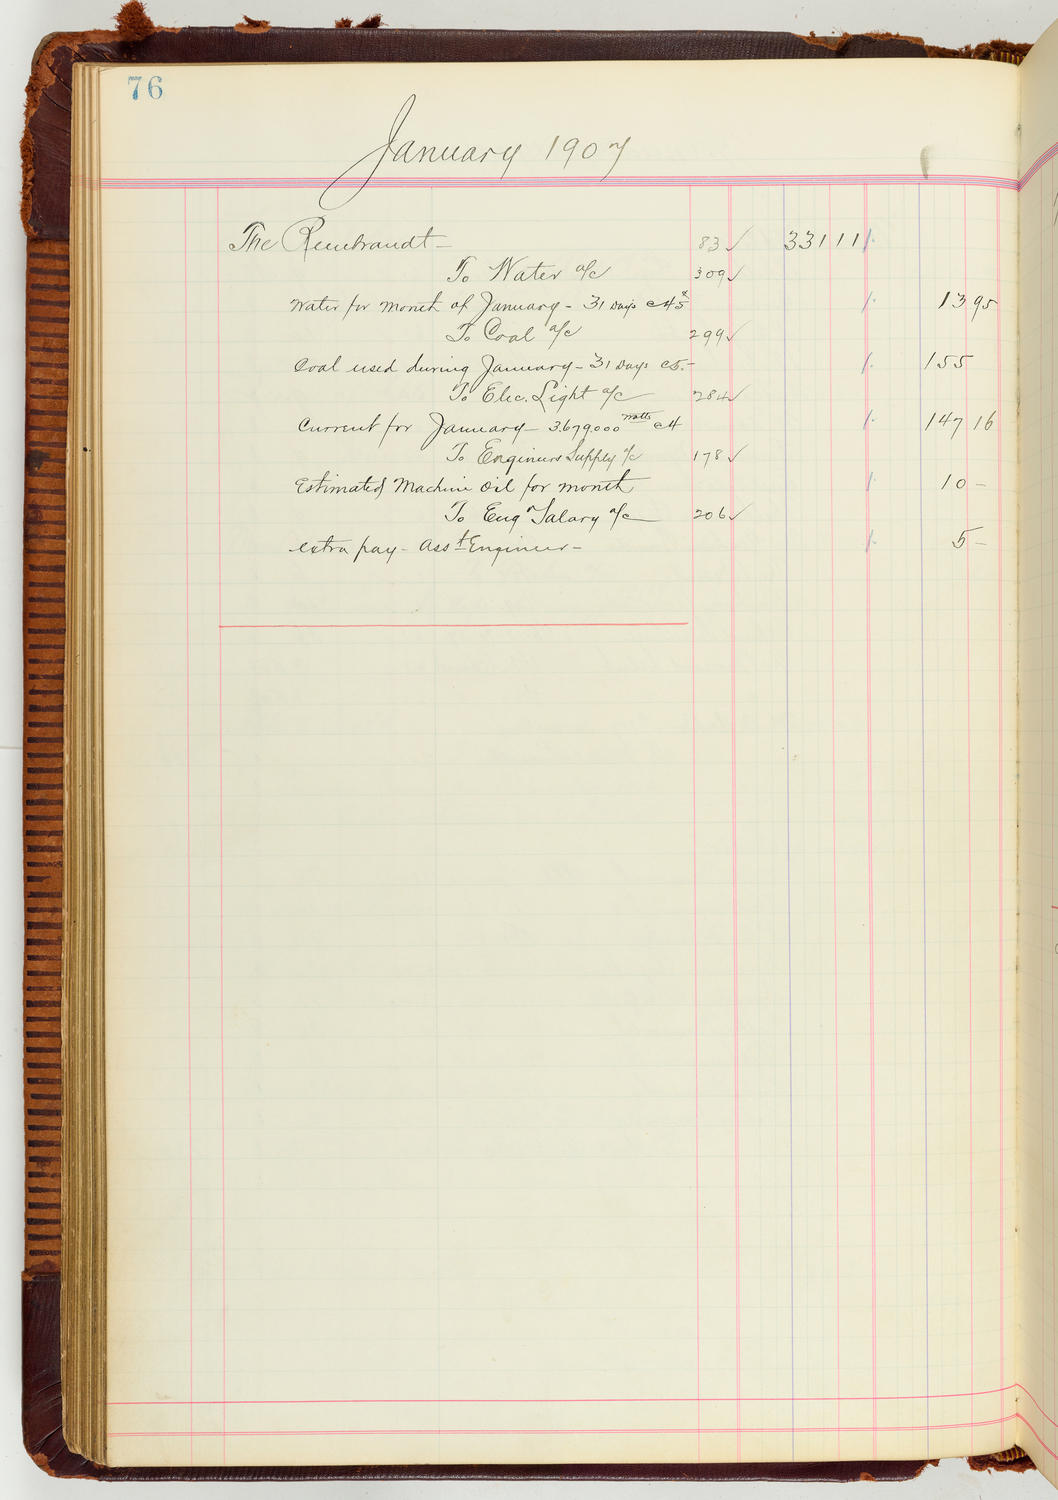 76
January 1907
The Rembrandt — 83 ✓ 331 11
To Water a/c 309 ✓
Water for month of January - 31 Days @ 45¢ 13 95
To Coal a/c 299 ✓
Coal used during January - 31 Days @ 5.- 155
To Elec. Light a/c 284 ✓
Current for January - 3.679.000 watts @ 4 147 16
To Engineers Supply a/c 178 ✓
Estimated Machine Oil for month 10 -
To Eng'r Salary a/c 206 ✓
extra pay - Ass't Engineer - 5 -